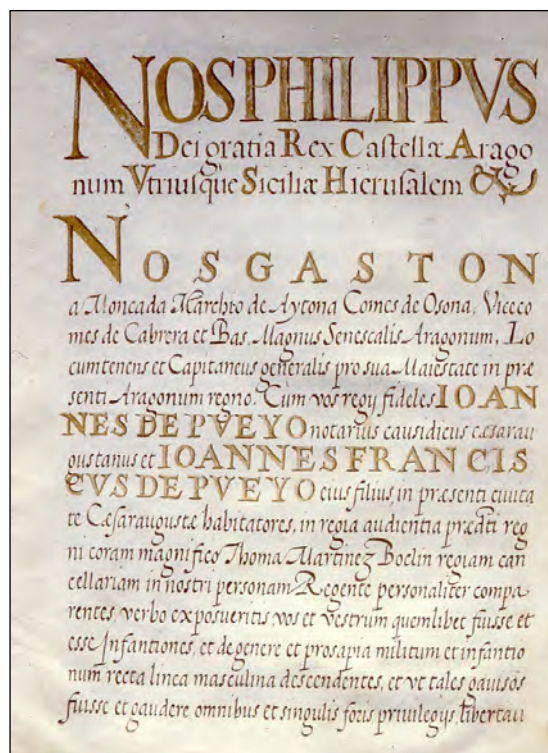 NOS PHILIPPVS
Dei gratia Rex Castellæ Arago
num Vtriusque Siciliæ Hierusalem &c
NOS GASTON
a Moncada Marchio de Aytona Comes de Osona, Viceco
mes de Cabrera et Bas, Magnus Senescalis Aragonum, Lo
cumtenens et Capitaneus generalis pro sua Maiestate in præ
senti Aragonum regno. Cum vos regij fideles IOAN
NES DE PVEYO notarius causidicus cæsarau
gustanus et IOANNES FRANCIS
CVS DE PVEYO eius filius in præsenti civita
te Cæsaraugustæ habitatores, in regia audientia prædti reg
ni coram magnifico Thoma Martinez Boclin regiam can
cellariam in nostri personam Regente personaliter compa
rentes, verbo exposueritis vos et vestrum quemlibet fuisse et
esse Infantiones, et de genere et prosapia militum et infantio
num recta linea masculina descendentes, et vt tales gauisos
fuisse et gaudere omnibus et singulis foris privilegijs, libertati